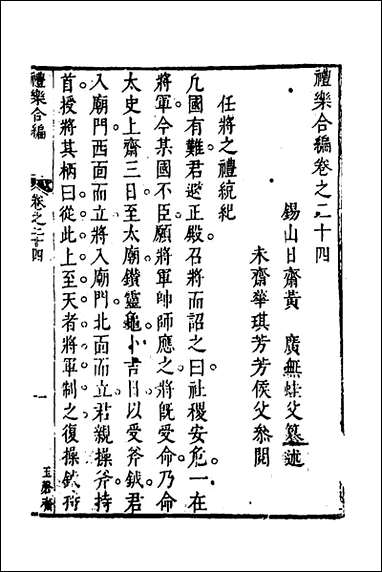 禮樂合編卷之二十四
錫山日齋黃　廣無蛙父纂述
未齋華琪芳芳侯父參閱
任將之禮統紀
凢國有難君避正殿召將而詔之曰社稷安危一在
將軍今某國不臣願將軍帥師應之將既受命乃命
太史上齋三日至太廟鑽靈龜卜吉日以受斧鉞君
入廟門西面而立將入廟門北面而立君親操斧持
首授將其柄曰從此上至天者將軍制之復操鉞持
禮樂合編
卷之二十四
一
玉磬齋